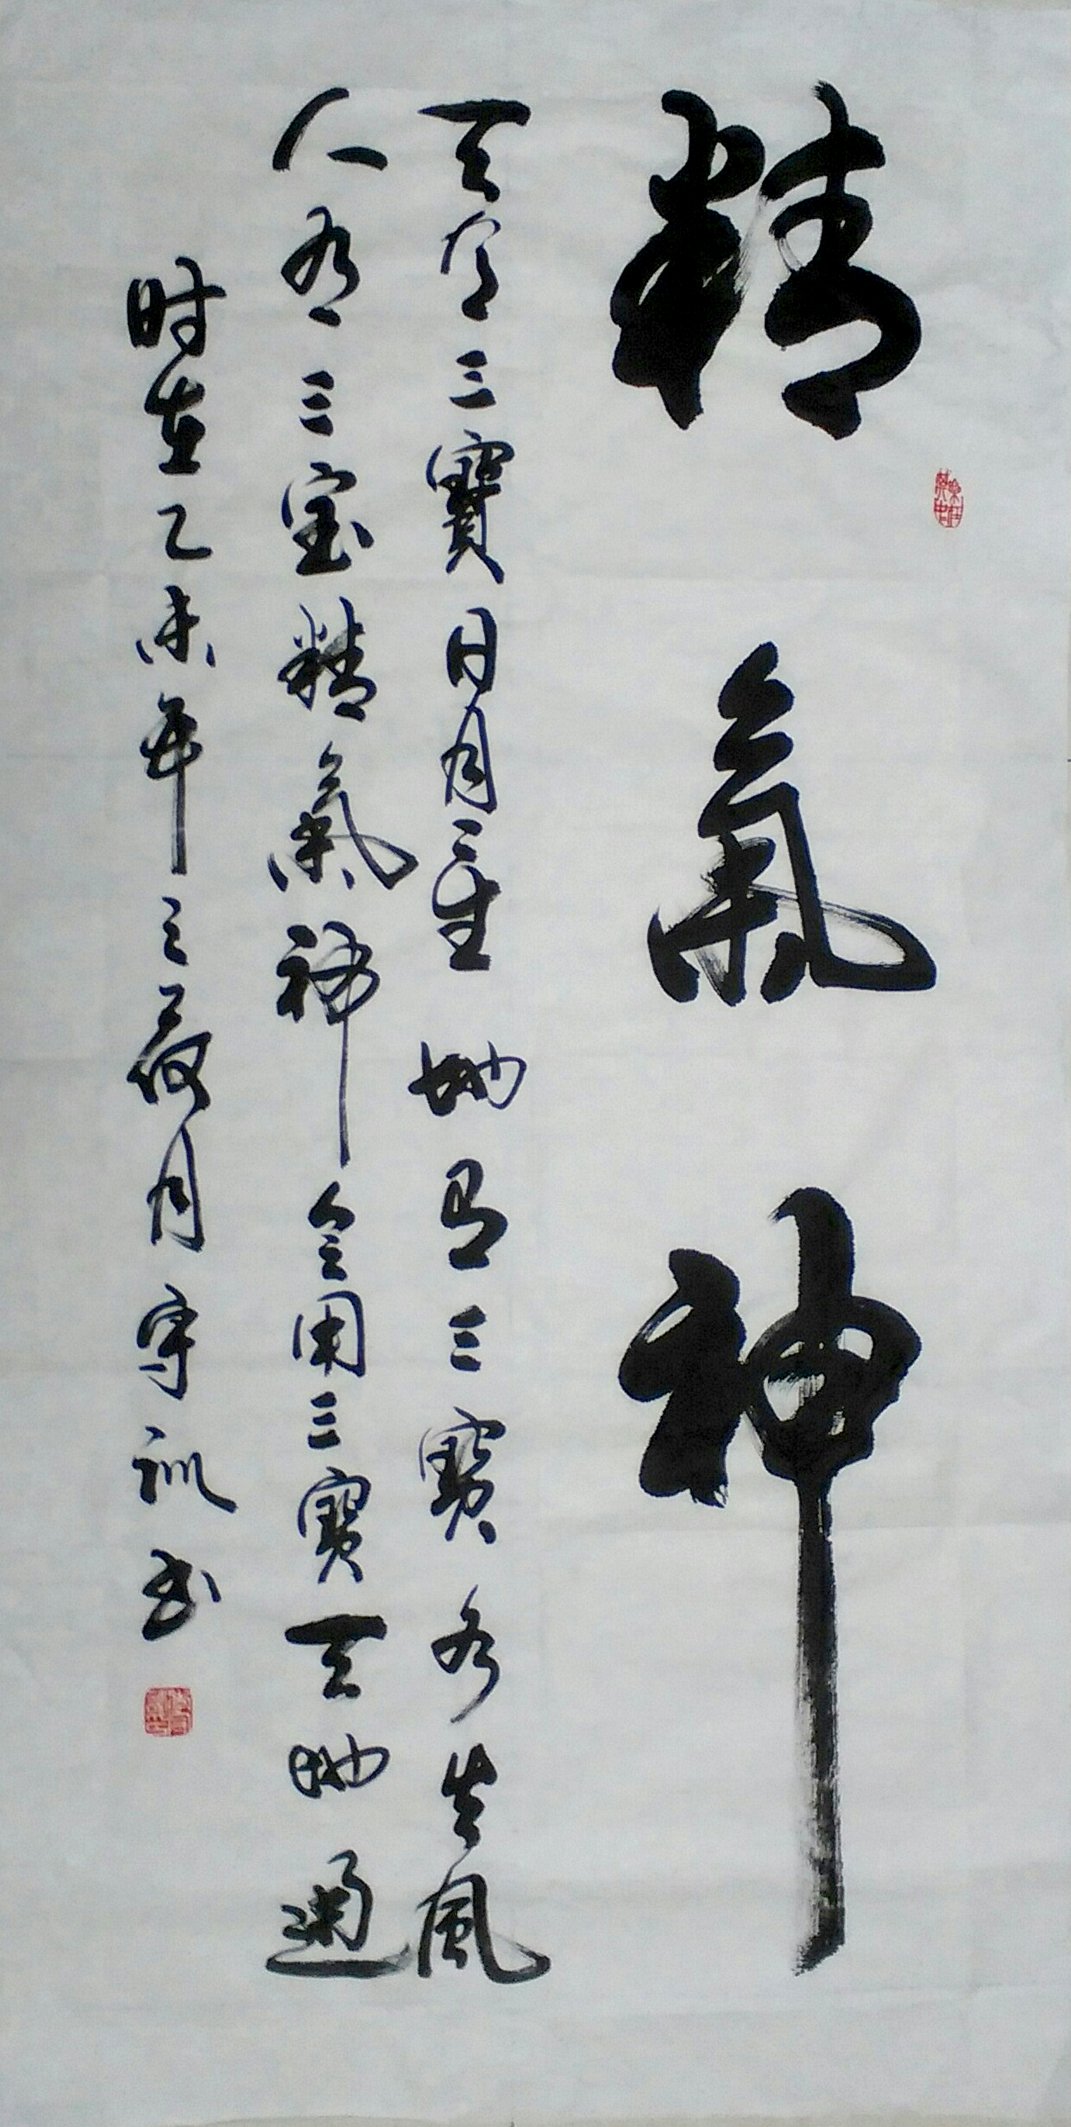 精氣神
天有三寶日月星地有三寶水火風
人有三宝精氣神会用三寶天地通
时在乙未年之荷月守训书